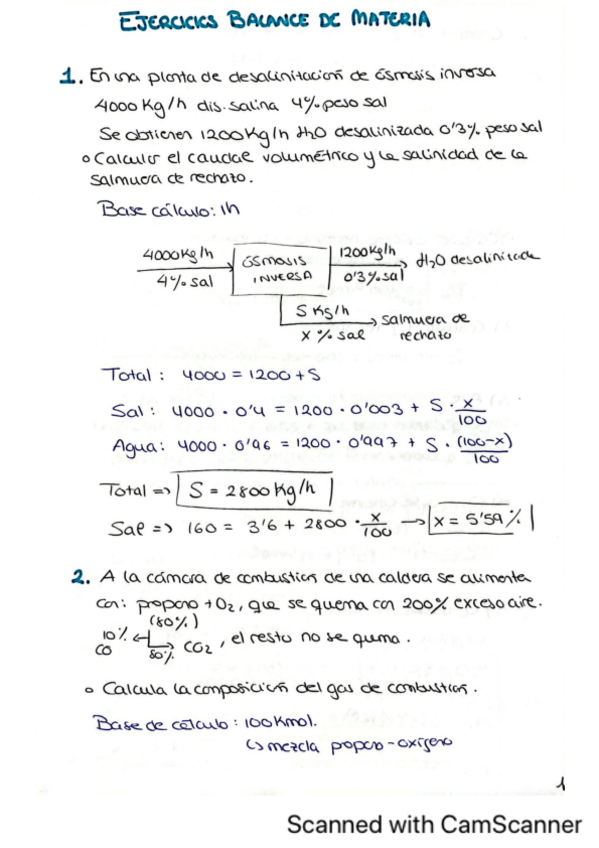 EJERCICIOS BALANCE DE MATERIA
1. En una planta de desalinitación de ósmosis inversa
4000 Kg/h dis. salina 4% peso sal
Se obtienen 1200 Kg/h H2O desalinizada 0'3% peso sal
o Calcular el caudal volumétrico y la salinidad de la
salmuera de rechazo.
Base cálculo: 1h
4000 Kg/h
4% sal
ÓSMOSIS
INVERSA
1200 Kg/h
0'3% sal
H2O desalinizada
S Kg/h
x % sal
salmuera de
rechazo
Total : 4000 = 1200 + S
Sal : 4000 · 0'4 = 1200 · 0'003 + S · x/100
Agua: 4000 · 0'96 = 1200 · 0'997 + S · (100-x)/100
Total => S = 2800 Kg/h
Sal => 160 = 3'6 + 2800 · x/100 → x = 5'59 %
2. A la cámara de combustión de una caldera se alimenta
con: propano + O2, que se quema con 200% exceso aire.
(80%)
10% CO
80% CO2, el resto no se quema.
o Calcula la composición del gas de combustión.
Base de cálculo: 100 Kmol.
↳ mezcla propano-oxígeno
1
Scanned with CamScanner